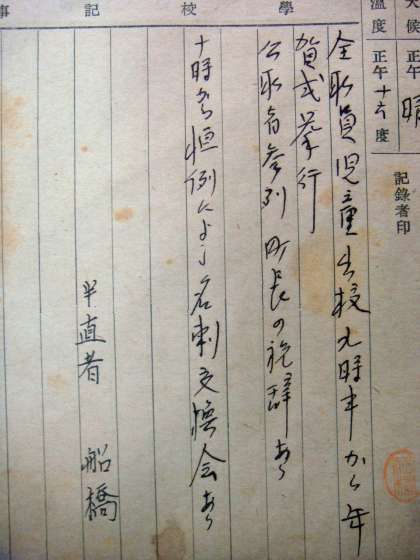 天候 正午 晴
溫度 正午 十六 度
記錄者印
學校記事
全職員児童出校 九時半から年
賀式挙行
公職者参列 町長の祝辞あり
十時から恒例により名刺交換会あり
半直者 船橋